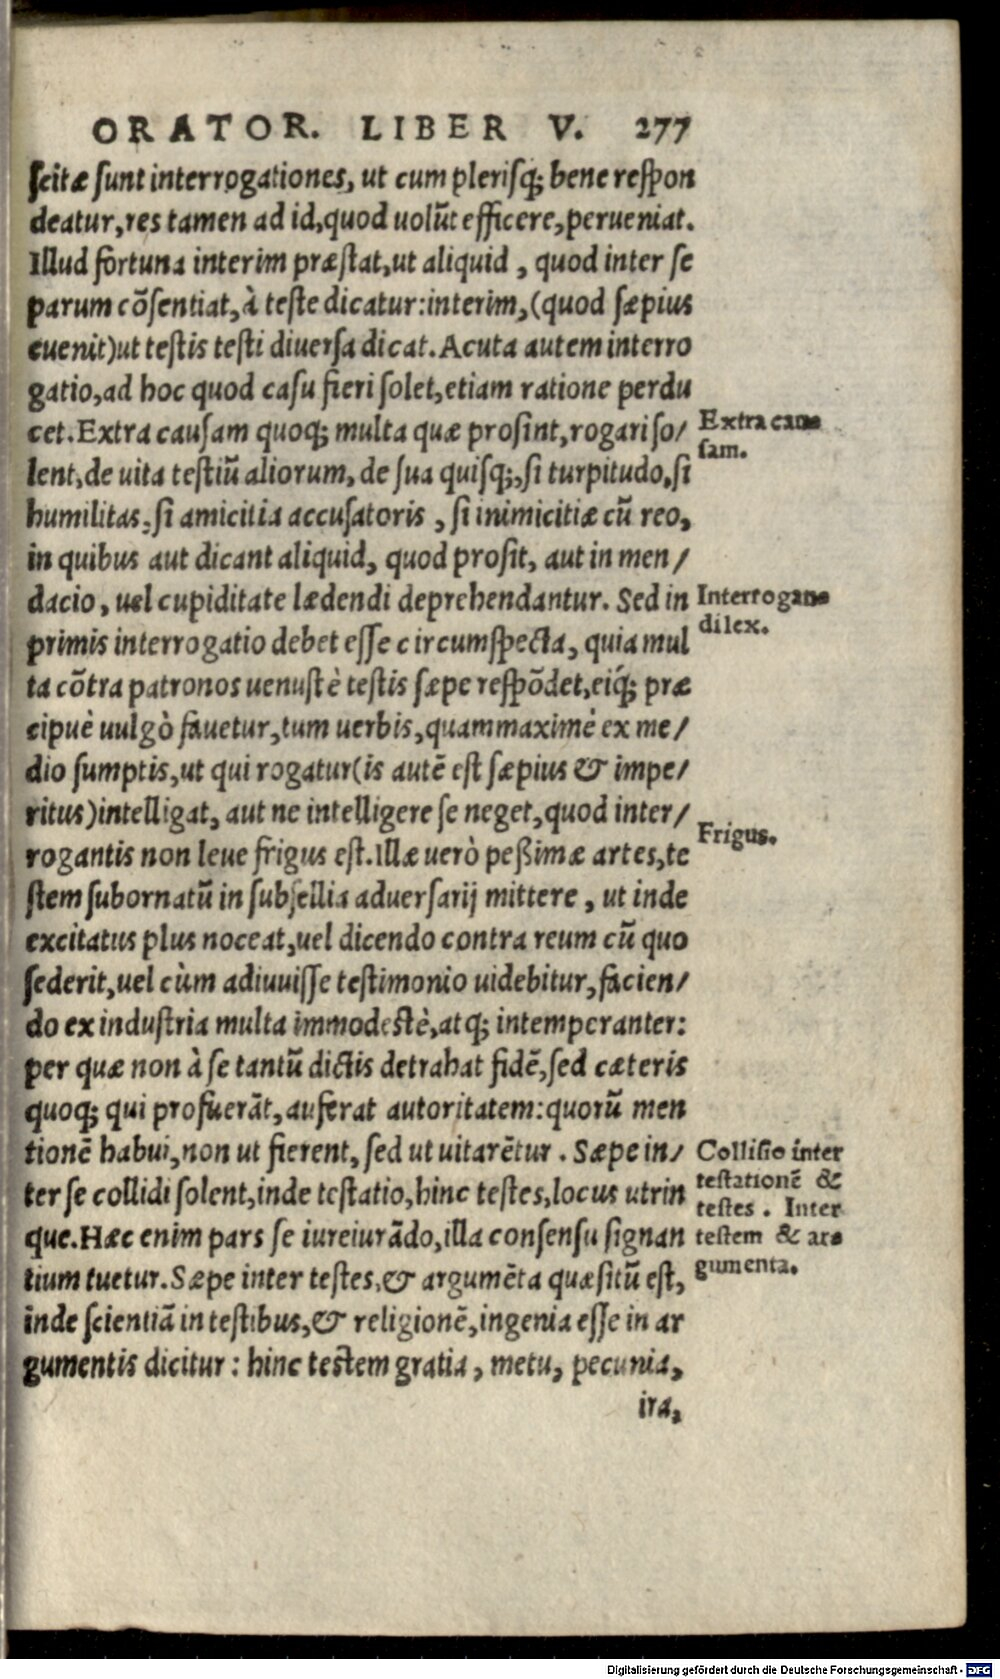 ORATOR. LIBER V. 277
scitæ sunt interrogationes, ut cum plerisq́; bene respon
deatur, res tamen ad id, quod uolũt efficere, perueniat.
Illud fortuna interim præstat, ut aliquid, quod inter se
parum cõsentiat, à teste dicatur: interim, (quod sæpius
euenit) ut testis testi diuersa dicat. Acuta autem interro
gatio, ad hoc quod casu fieri solet, etiam ratione perdu
cet. Extra causam quoq; multa quæ prosint, rogari so/
lent, de uita testiũ aliorum, de sua quisq;, si turpitudo, si
humilitas, si amicitia accusatoris, si inimicitiæ cũ reo,
in quibus aut dicant aliquid, quod prosit, aut in men/
dacio, uel cupiditate lædendi deprehendantur. Sed in
primis interrogatio debet esse circumspecta, quia mul
ta cõtra patronos uenustè testis sæpe respõdet, eiq́; præ
cipuè uulgò fauetur, tum uerbis, quam maximè ex me/
dio sumptis, ut qui rogatur (is autẽ est sæpius & impe/
ritus) intelligat, aut ne intelligere se neget, quod inter/
rogantis non leue frigus est. Illæ uerò peßimæ artes, te
stem subornatũ in subsellia aduersarij mittere, ut inde
excitatus plus noceat, uel dicendo contra reum cũ quo
sederit, uel cùm adiuuisse testimonio uidebitur, facien/
do ex industria multa immodestè, atq; intemperanter:
per quæ non à se tantũ dictis detrahat fidẽ, sed cæteris
quoq; qui profuerãt, auferat autoritatem: quorũ men
tionẽ habui, non ut fierent, sed ut uitarẽtur. Sæpe in/
ter se collidi solent, inde testatio, hinc testes, locus utrin
que. Hæc enim pars se iureiurãdo, illa consensu signan
tium tuetur. Sæpe inter testes, & argumẽta quæsitũ est,
inde scientiã in testibus, & religionẽ, ingenia esse in ar
gumentis dicitur: hinc testem gratia, metu, pecunia,
ira,
Extra cau=
sam.
Interrogan=
di lex.
Frigus.
Collisio inter
testationẽ &
testes. Inter
testem & ar=
gumenta.
Digitalisierung gefördert durch die Deutsche Forschungsgemeinschaft - DFG